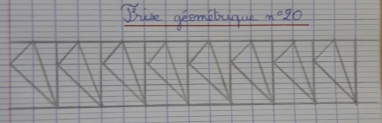 Frise géométrique n°20